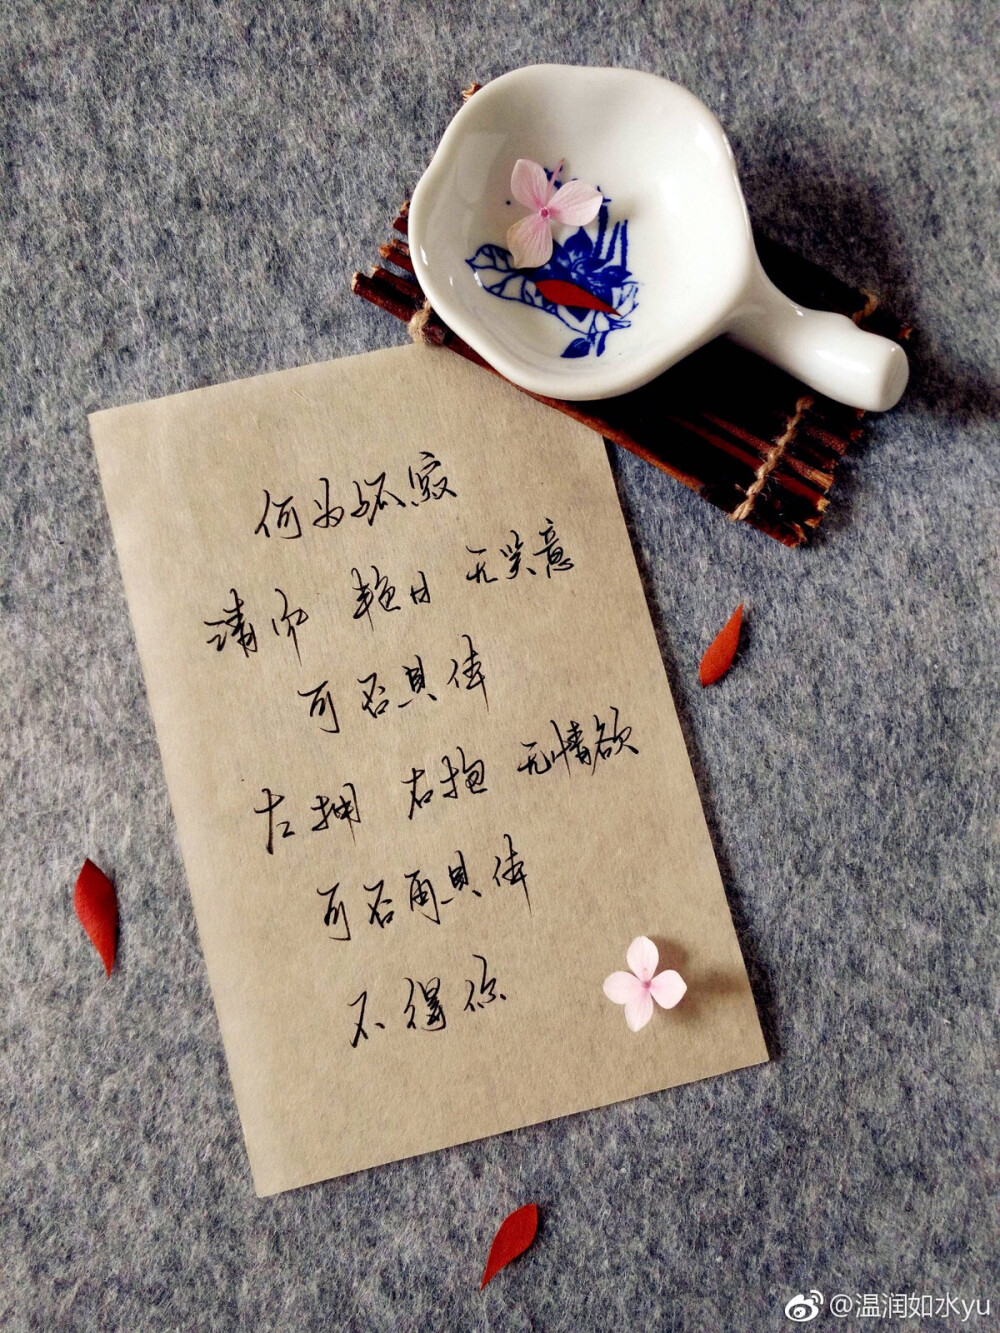 何为孤寂
清风 艳日 无笑意
可否具体
左拥 右抱 无情欲
可否再具体
不得你
@温润如水yu